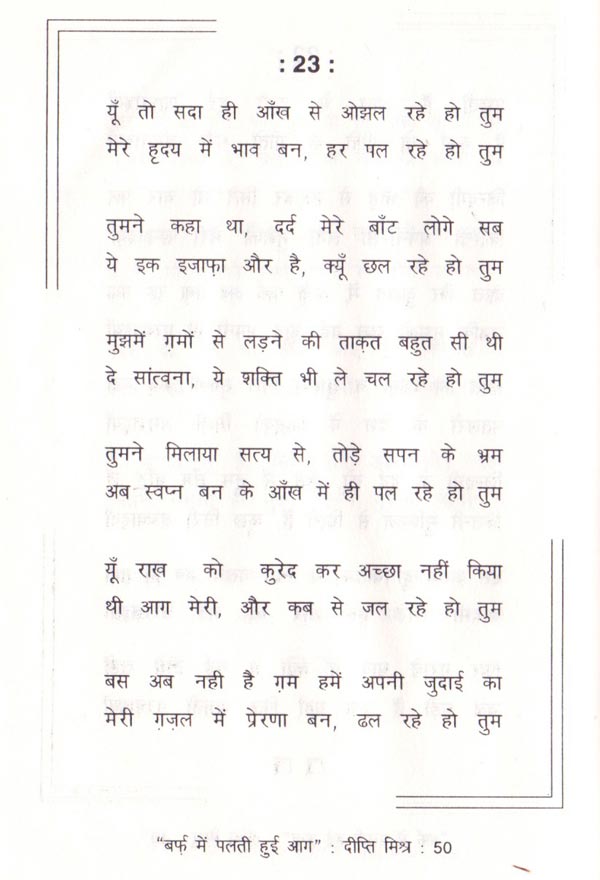 : 23 :
यूँ तो सदा ही आँख से ओझल रहे हो तुम
मेरे हृदय में भाव बन, हर पल रहे हो तुम
तुमने कहा था, दर्द मेरे बाँट लोगे सब
ये इक इजाफ़ा और है, क्यूँ छल रहे हो तुम
मुझमें ग़मों से लड़ने की ताक़त बहुत सी थी
दे सांत्वना, ये शक्ति भी ले चल रहे हो तुम
तुमने मिलाया सत्य से, तोड़े सपन के भ्रम
अब स्वप्न बन के आँख में ही पल रहे हो तुम
यूँ राख को कुरेद कर अच्छा नहीं किया
थी आग मेरी, और कब से जल रहे हो तुम
बस अब नही है ग़म हमें अपनी जुदाई का
मेरी ग़ज़ल में प्रेरणा बन, ढल रहे हो तुम
“बर्फ़ में पलती हुई आग” : दीप्ति मिश्र : 50